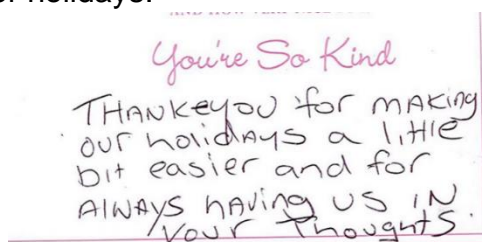 or holidays.
You're So Kind
THANKEYOU for MAKING
our holidAYS a little
bit easier and for
AlwAYS hAVing US IN
Your Thoughts.